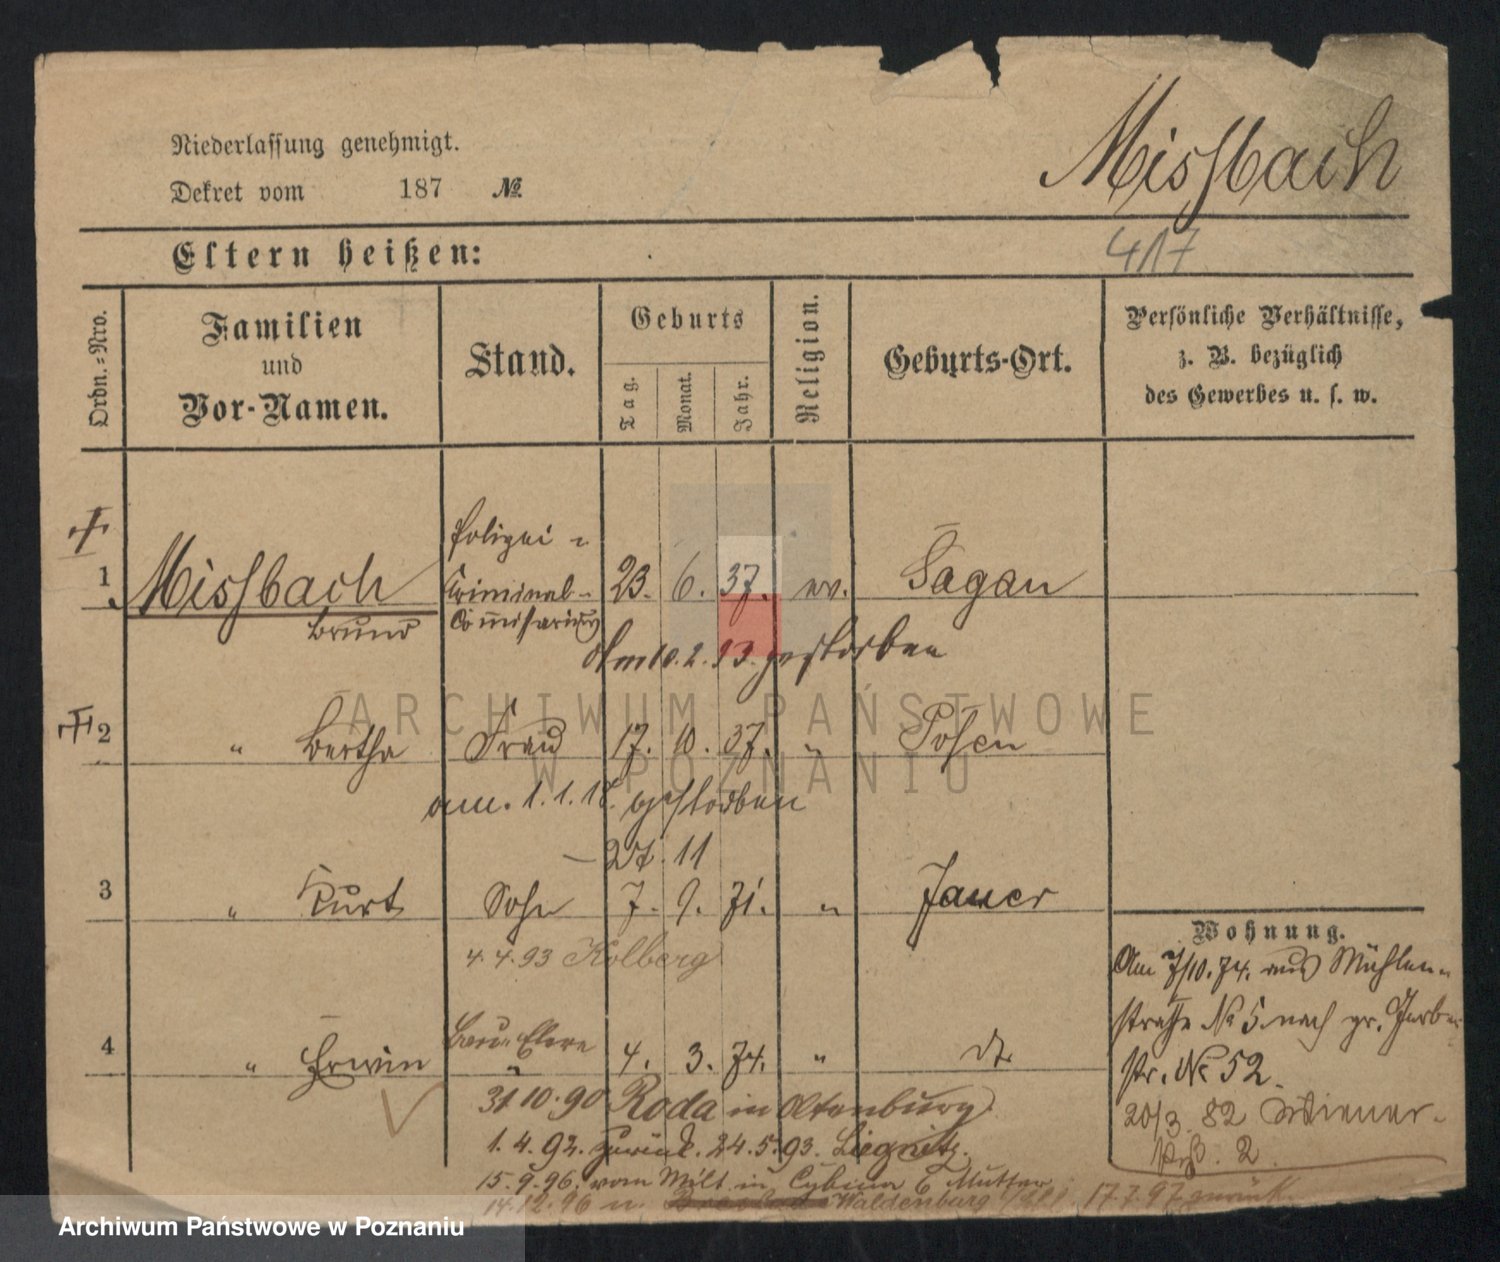 Niederlassung genehmigt.
Dekret vom 187 №
Missbach
Eltern heißen:
417
Ordn.-Nro.
Familien
und
Vor-Namen.
Stand.
Geburts
Tag.
Monat.
Jahr.
Religion.
Geburts-Ort.
Persönliche Verhältnisse,
z. B. bezüglich
des Gewerbes u. s. w.
Polizei u
1 Missbach Criminal- 23. 6. 37. ev. Sagan
Bruno Commissarius
Am 10.2.93. gestorben
ARCHIWUM PAŃSTWOWE
W POZNANIU
2 " Bertha Frau 17. 10. 37. " Posen
am. 1.1.18. gestorben
27. 11
3 " Kurt Sohn 7. 9. 71. " Jauer
4.4.93 Kolberg
4 " Erwin " 4. 3. 74. " do
31.10.90 Roda in Altenburg
1.4.92. zurück. 24.5.93. Liegnitz.
15.9.96. vom Milt. in Cybina 6 Mutter
14.12.96 n. Waldenburg 17.7.97 zurück.
Wohnung.
Am 7/10.74. aus Mühlen-
straße № 5 nach gr. Gerber
str. № 52.
20/3. 82 Wiener-
2
Archiwum Państwowe w Poznaniu